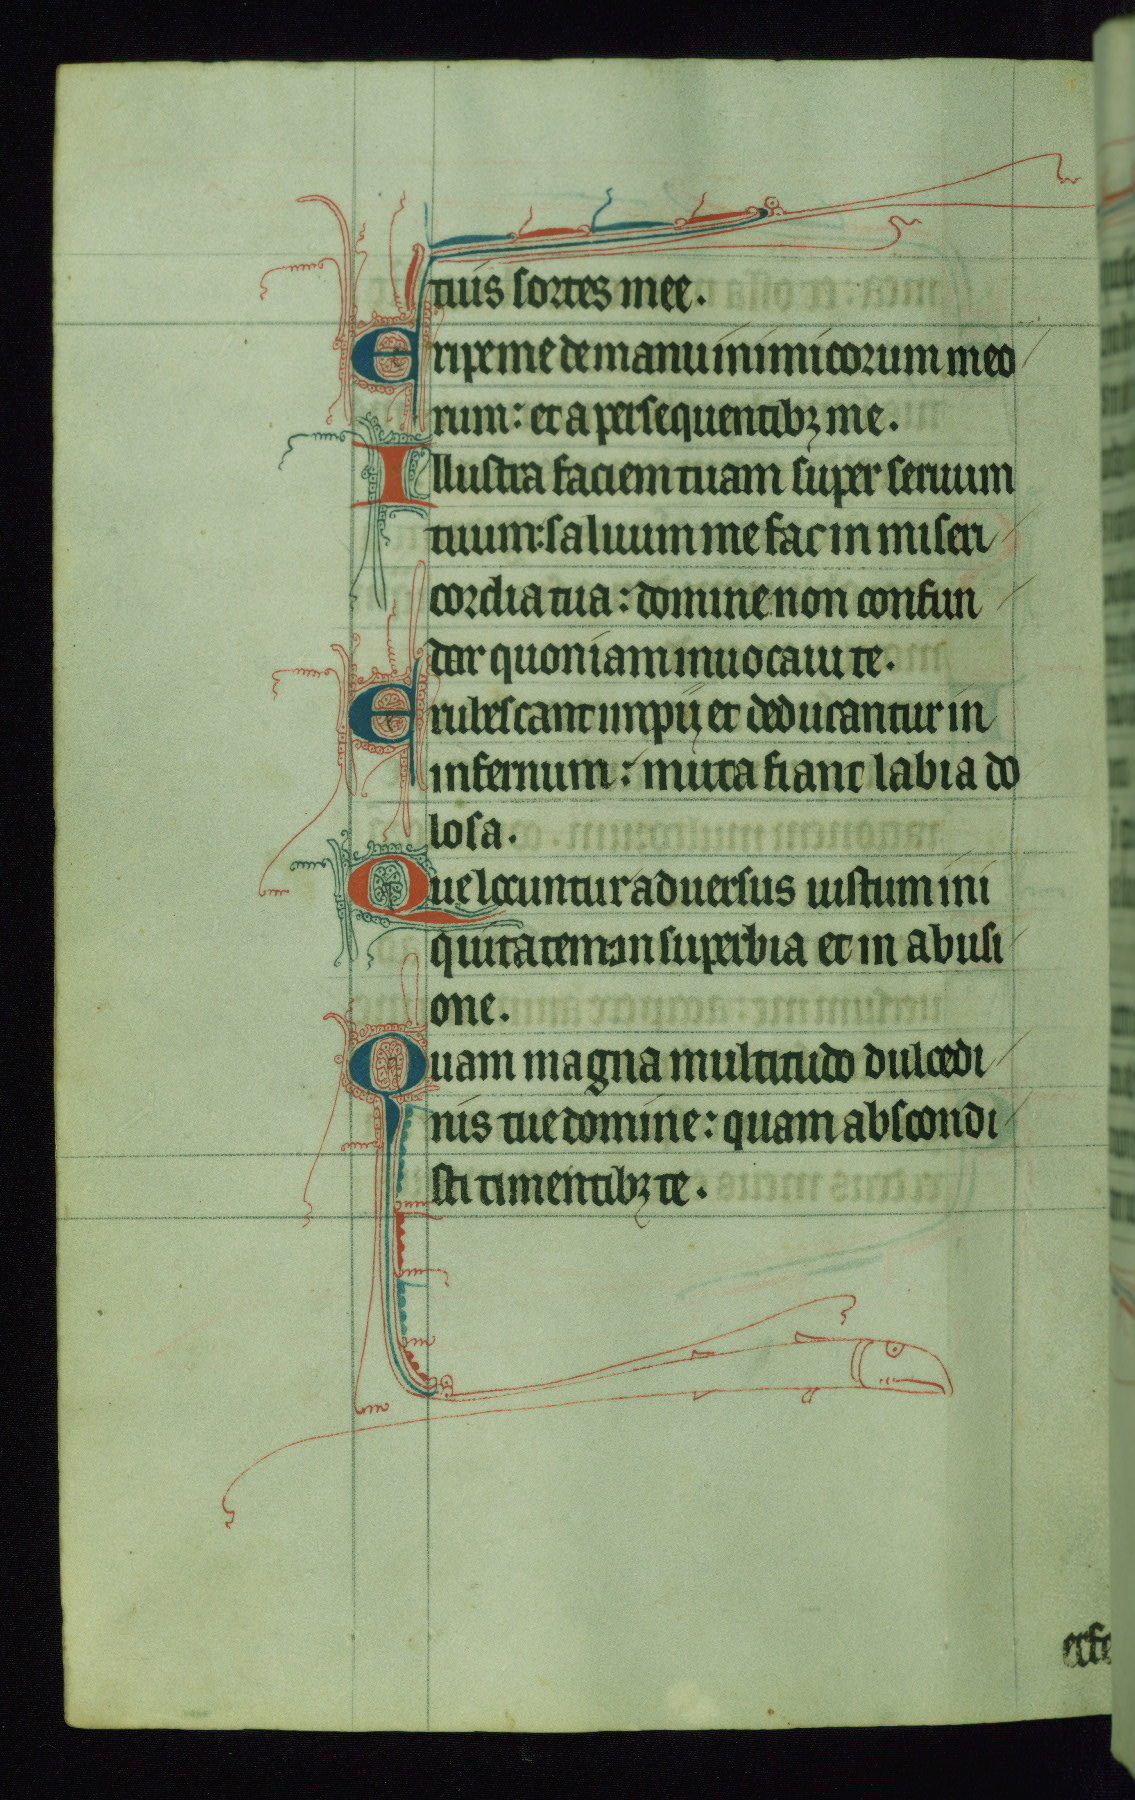 tuis sortes mee.
Eripe me de manu inimicorum meo
rum: et a persequentibꝫ me.
Illustra faciem tuam super seruum
tuum: saluum me fac in miseri
cordia tua: domine non confun
dar quoniam inuocaui te.
Erubescant impij et deducantur in
infernum: muta fiant labia do
losa.
Que locuntur aduersus iustum ini
quitatem: in superbia et in abusi
one.
Quam magna multitudo dulcedi
nis tue domine: quam abscondi
sti timentibꝫ te.